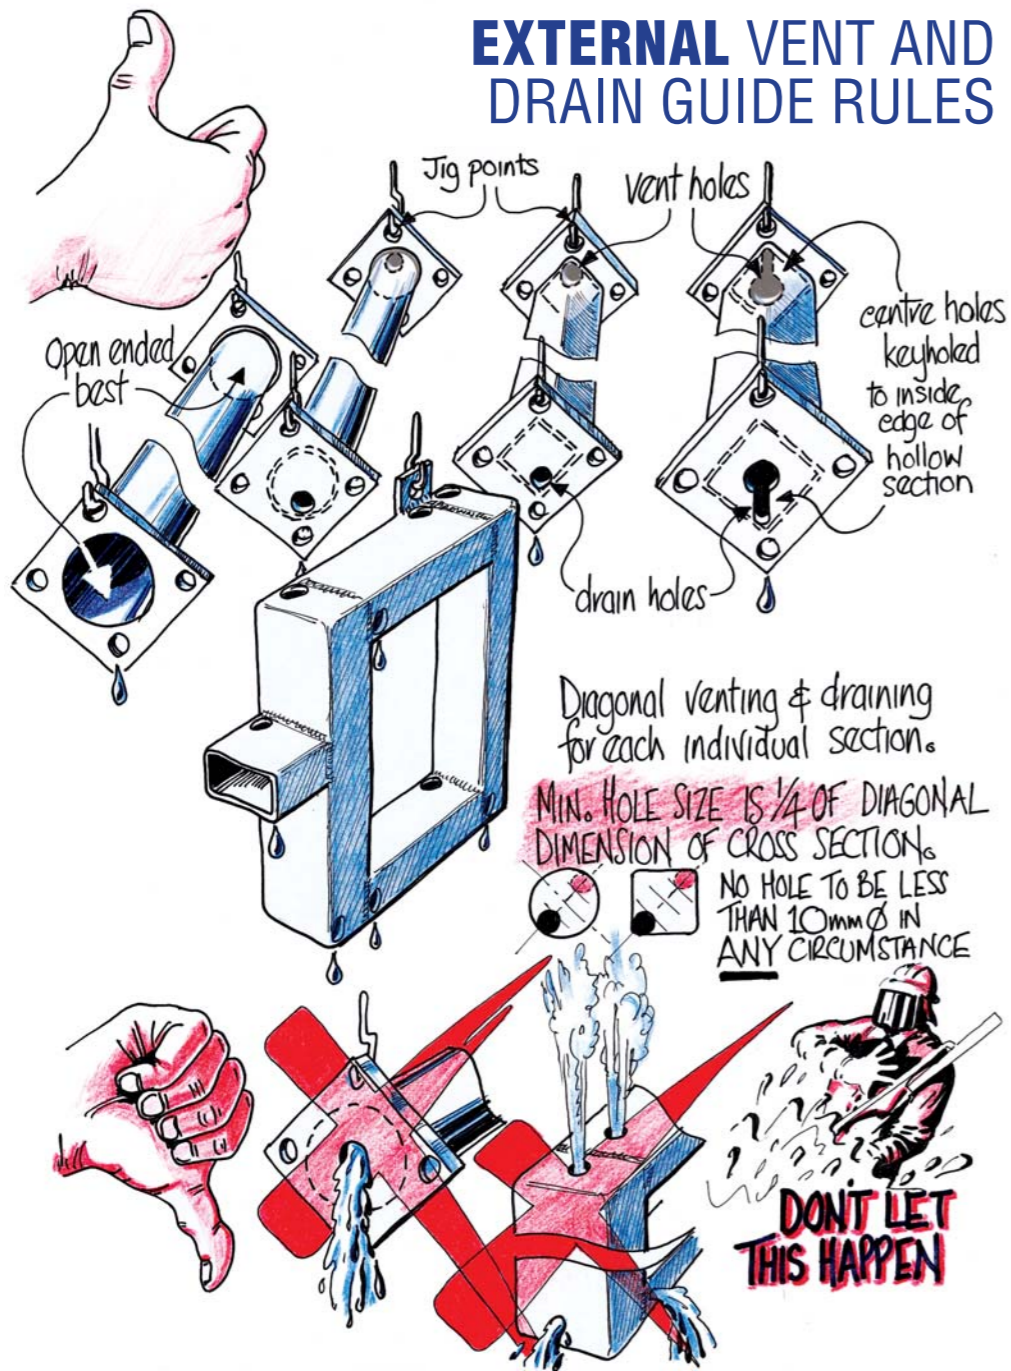 EXTERNAL VENT AND
DRAIN GUIDE RULES
Jig points
vent holes
Open ended
best
centre holes
keyholed
to inside
edge of
hollow
section
drain holes
Diagonal venting & draining
for each individual section.
MIN. HOLE SIZE IS 1/4 OF DIAGONAL
DIMENSION OF CROSS SECTION.
NO HOLE TO BE LESS
THAN 10mm Ø IN
ANY CIRCUMSTANCE
DON'T LET
THIS HAPPEN